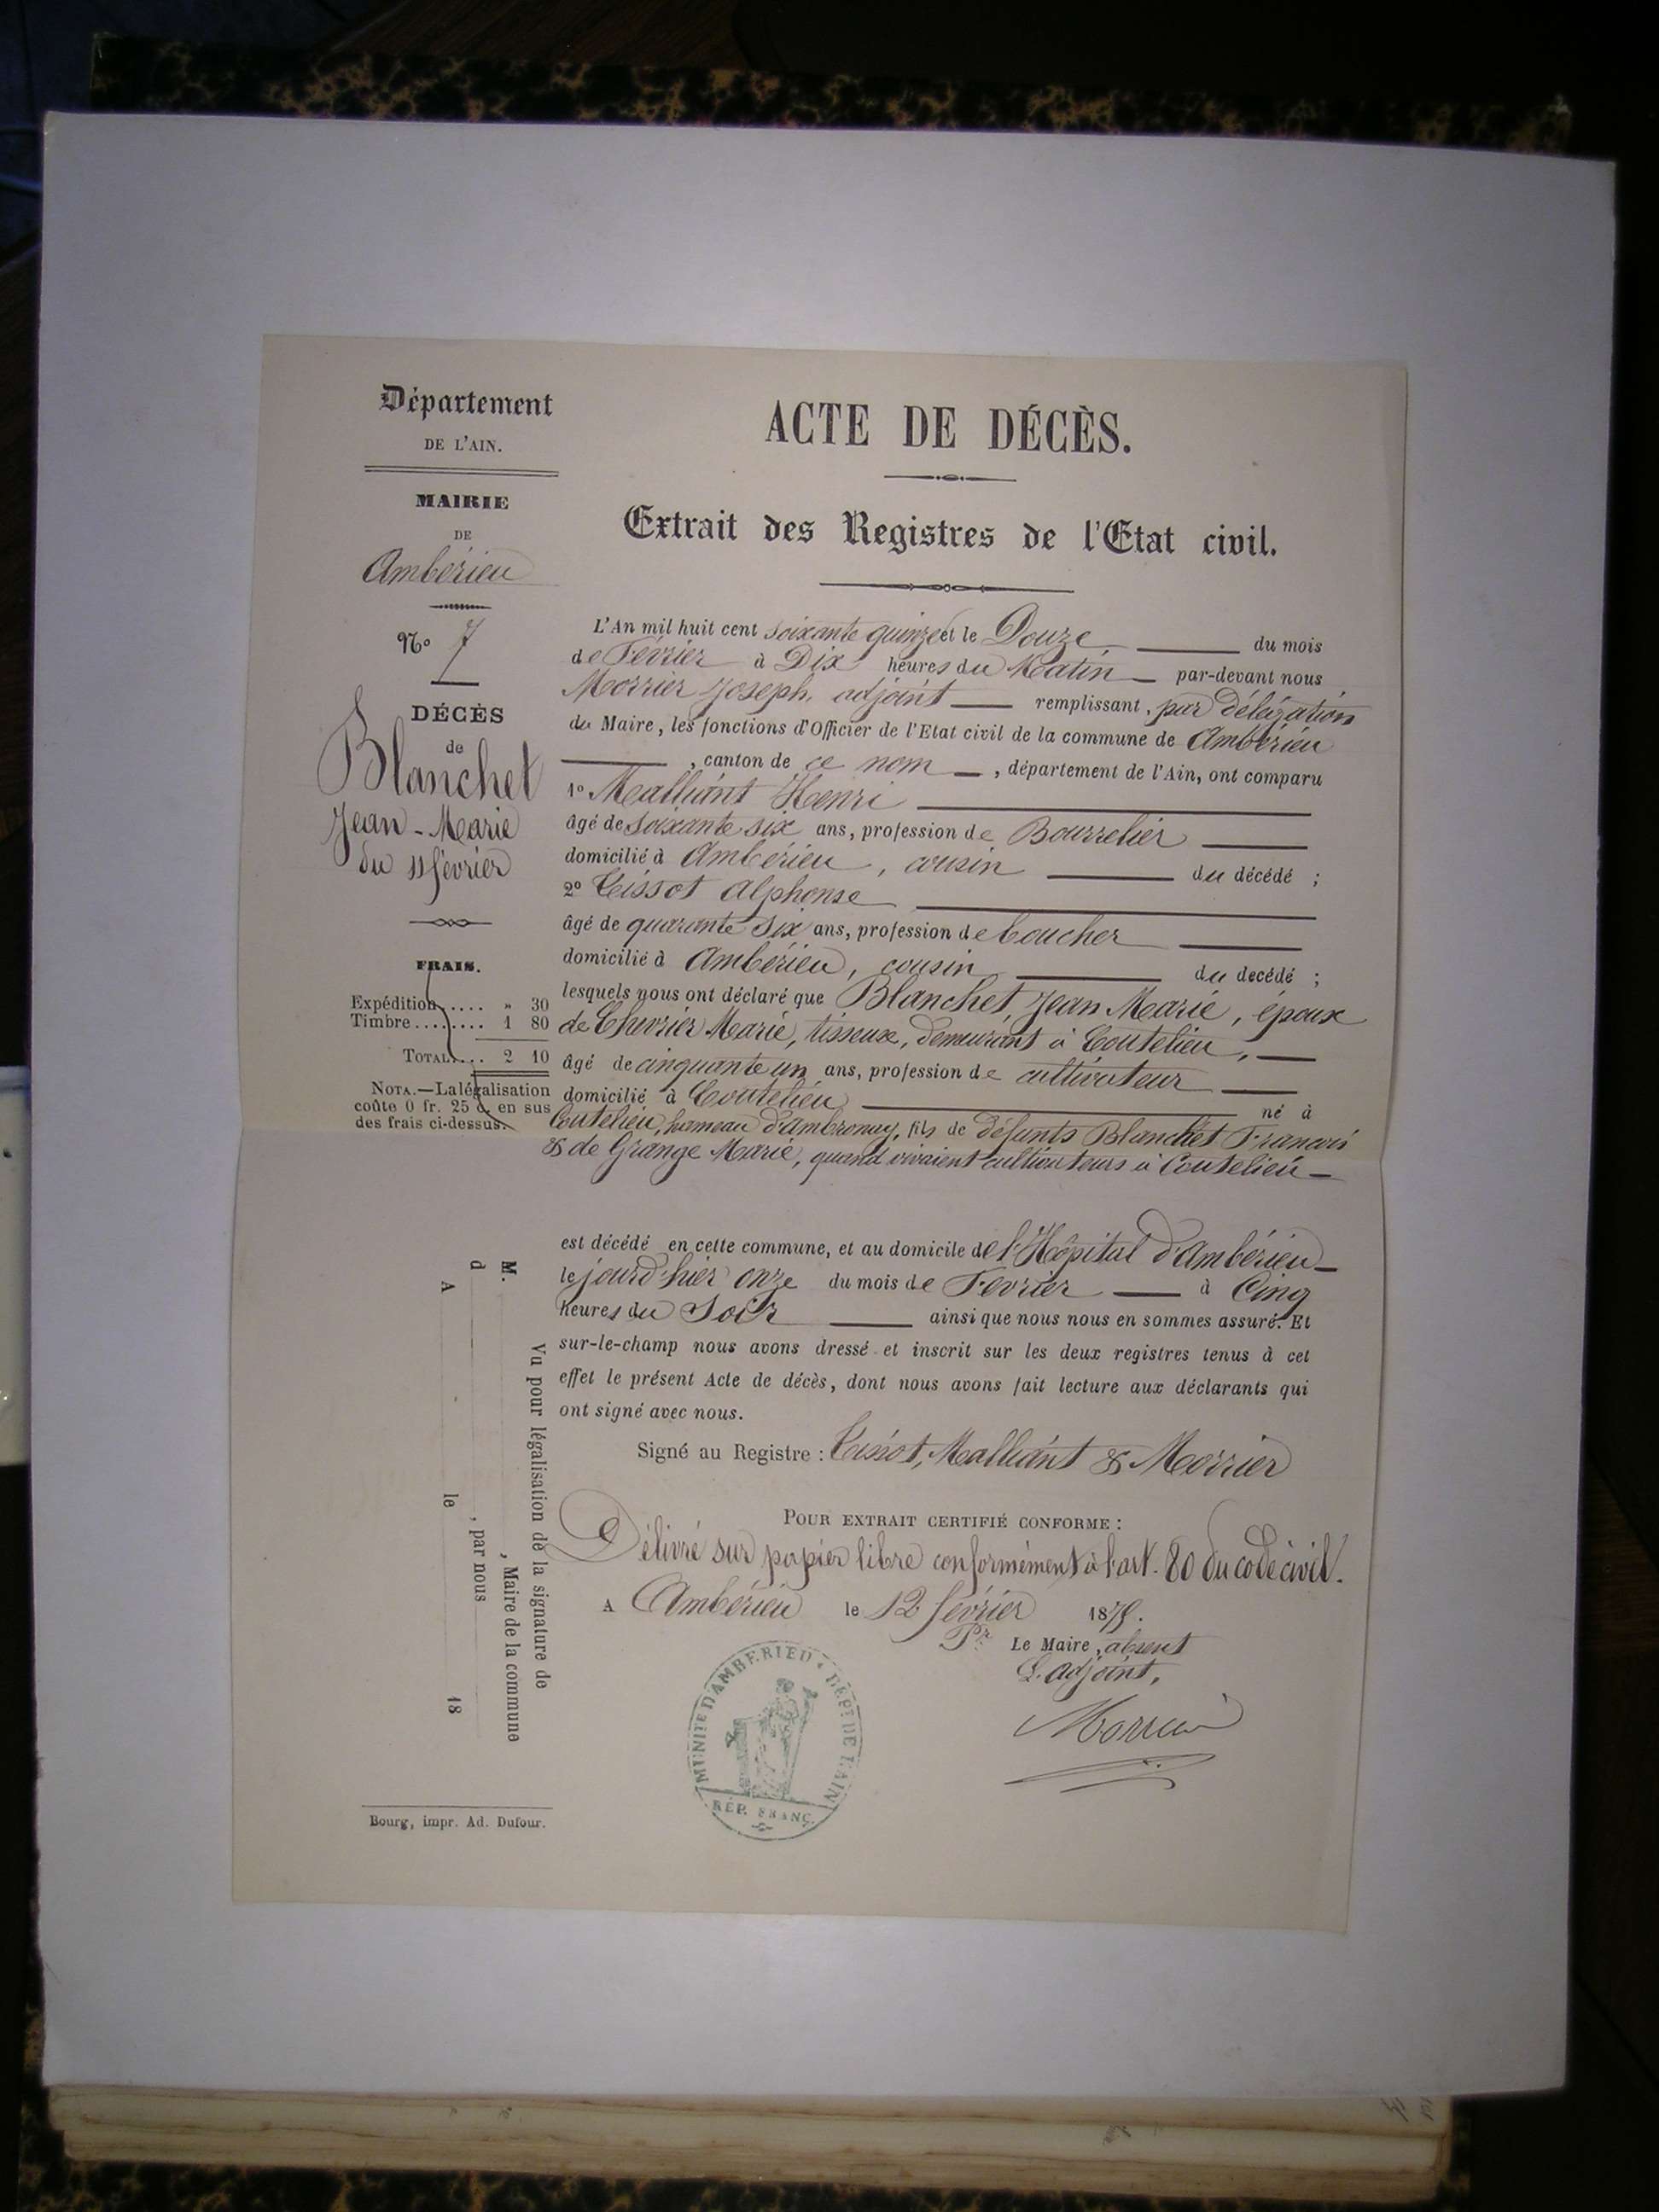 Département
DE L'AIN.
MAIRIE
DE
Ambérieu
No 7
DÉCÈS
de
Blanchet
Jean-Marie
du 11 février
FRAIS.
Expédition.... » 30
Timbre........ 1 80
TOTAL.... 2 10
NOTA.—La légalisation
coûte 0 fr. 25 c. en sus
des frais ci-dessus.
ACTE DE DÉCÈS.
Extrait des Registres de l'Etat civil.
L'An mil huit cent soixante quinze et le Douze du mois
de Février à Dix heures du Matin par-devant nous
Morrier Joseph, adjoint remplissant, par délégation
du Maire, les fonctions d'Officier de l'Etat civil de la commune de Ambérieu
, canton de ce nom , département de l'Ain, ont comparu
1o Malliant Henri
âgé de soixante six ans, profession de Bourrelier
domicilié à Ambérieu, cousin du décédé ;
2o Tissot Alphonse
âgé de quarante six ans, profession de boucher
domicilié à Ambérieu, cousin du décédé ;
lesquels nous ont déclaré que Blanchet, Jean Marie, époux
de Chevrier Marie, tisseuse, demeurant à Coutelieu,
âgé de cinquante un ans, profession de cultivateur
domicilié à Coutelieu né à
Coutelieu, hameau d'ambronay, fils de défunts Blanchet Francois
& de Grange Marie, quand vivaient cultivateurs à Coutelieu
est décédé en cette commune, et au domicile de l'Hôpital d'Ambérieu
le jourd'hier onze du mois de Février à Cinq
heures du Soir ainsi que nous nous en sommes assuré. Et
sur-le-champ nous avons dressé et inscrit sur les deux registres tenus à cet
effet le présent Acte de décès, dont nous avons fait lecture aux déclarants qui
ont signé avec nous.
Signé au Registre : Tissot, Malliant & Morrier
POUR EXTRAIT CERTIFIÉ CONFORME :
Délivré sur papier libre conformément à l'art. 80 du code civil.
A Ambérieu le 12 février 1875.
Pr Le Maire, absent
L'adjoint,
Morrier
MUNITÉ D'AMBERIEU DEPT DE L'AIN
RÉP. FRANÇ.
Vu pour légalisation de la signature de
M. , Maire de la commune
d , par nous
A le 18
Bourg, impr. Ad. Dufour.